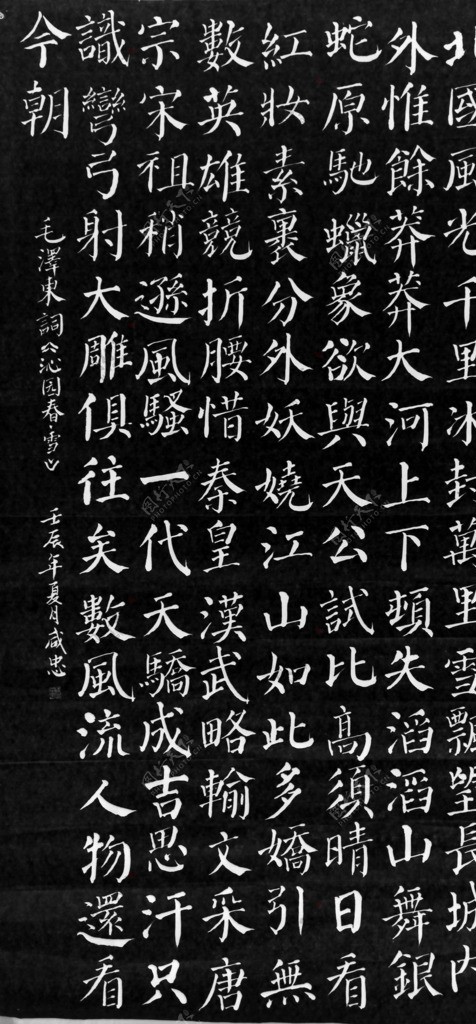 北國風光千里冰封萬里雪飄望長城内
外惟餘莽莽大河上下頓失滔滔山舞銀
蛇原馳蠟象欲與天公試比髙須晴日看
紅妝素裹分外妖嬈江山如此多嬌引無
數英雄競折腰惜秦皇漢武略輸文采唐
宗宋祖稍遜風騷一代天驕成吉思汗只
識彎弓射大雕俱往矣數風流人物還看
今朝
毛澤東詞《沁园春雪》 壬辰年夏月咸忠